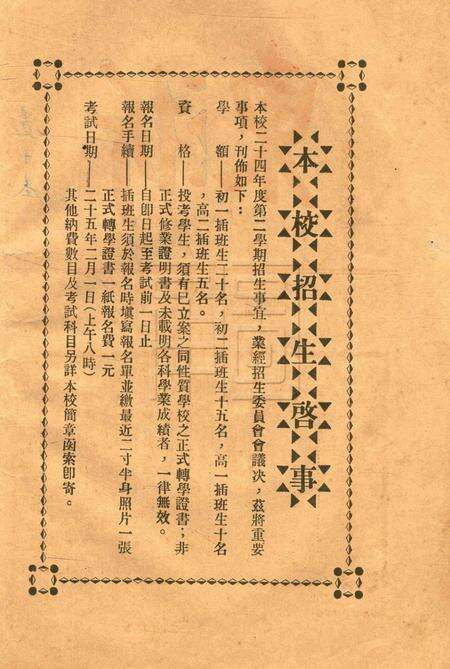 本校招生啓事
本校二十四年度第二學期招生事宜，業經招生委員會會議决，茲將重要
事項，刊佈如下：
學　額——初一插班生二十名，初二插班生十五名，高一插班生十名
，高二插班生五名。
資　格——投考學生，須有已立案之同性質學校之正式轉學證書；非
正式修業證明書及未載明各科學業成績者，一律無效。
報名日期——自卽日起至考試前一日止
報名手續——插班生須於報名時塡寫報名單並繳最近二寸半身照片一張
正式轉學證書一紙報名費一元
考試日期——二十五年二月一日（上午八時）
其他納費數目及考試科目另詳本校簡章函索卽寄。